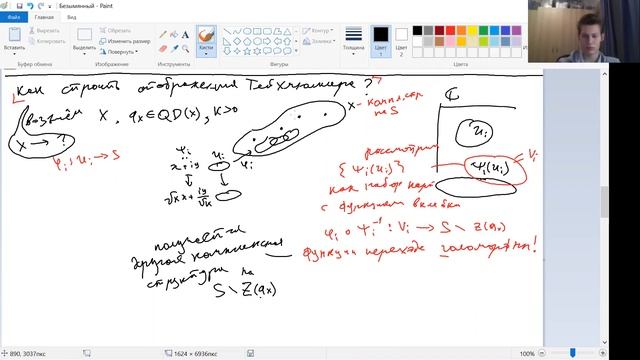 Безымянный - Paint
Файл
Главная
Вид
Вставить
Вырезать
Копировать
Буфер обмена
Выделить
Обрезать
Изменить размер
Повернуть
Изображение
Инструменты
Кисти
Контур
Заливка
Фигуры
Толщина
Цвет 1
Цвет 2
Изменение цветов
Как строить отображения Тейхмюллера?
возьмём X, q_X ∈ QD(X), K>0
X → ?
φ_i: U_i → S
X - компл. стр. на S
φ_i
x+iy
√K x + iy/√K
U_i
φ_i
ℂ
U_i
Ψ_i(U_i)
V_i
рассмотрим
{Ψ_i(U_i)}
как набор карт
с функциями вклейки
φ_i ∘ Ψ_i^{-1} : V_i → S \ Z(q_X)
функции перехода голоморфны!
получается
другая комплексная
структура на
S \ Z(q_X)
890, 3037пкс
1624 × 6936пкс
100%